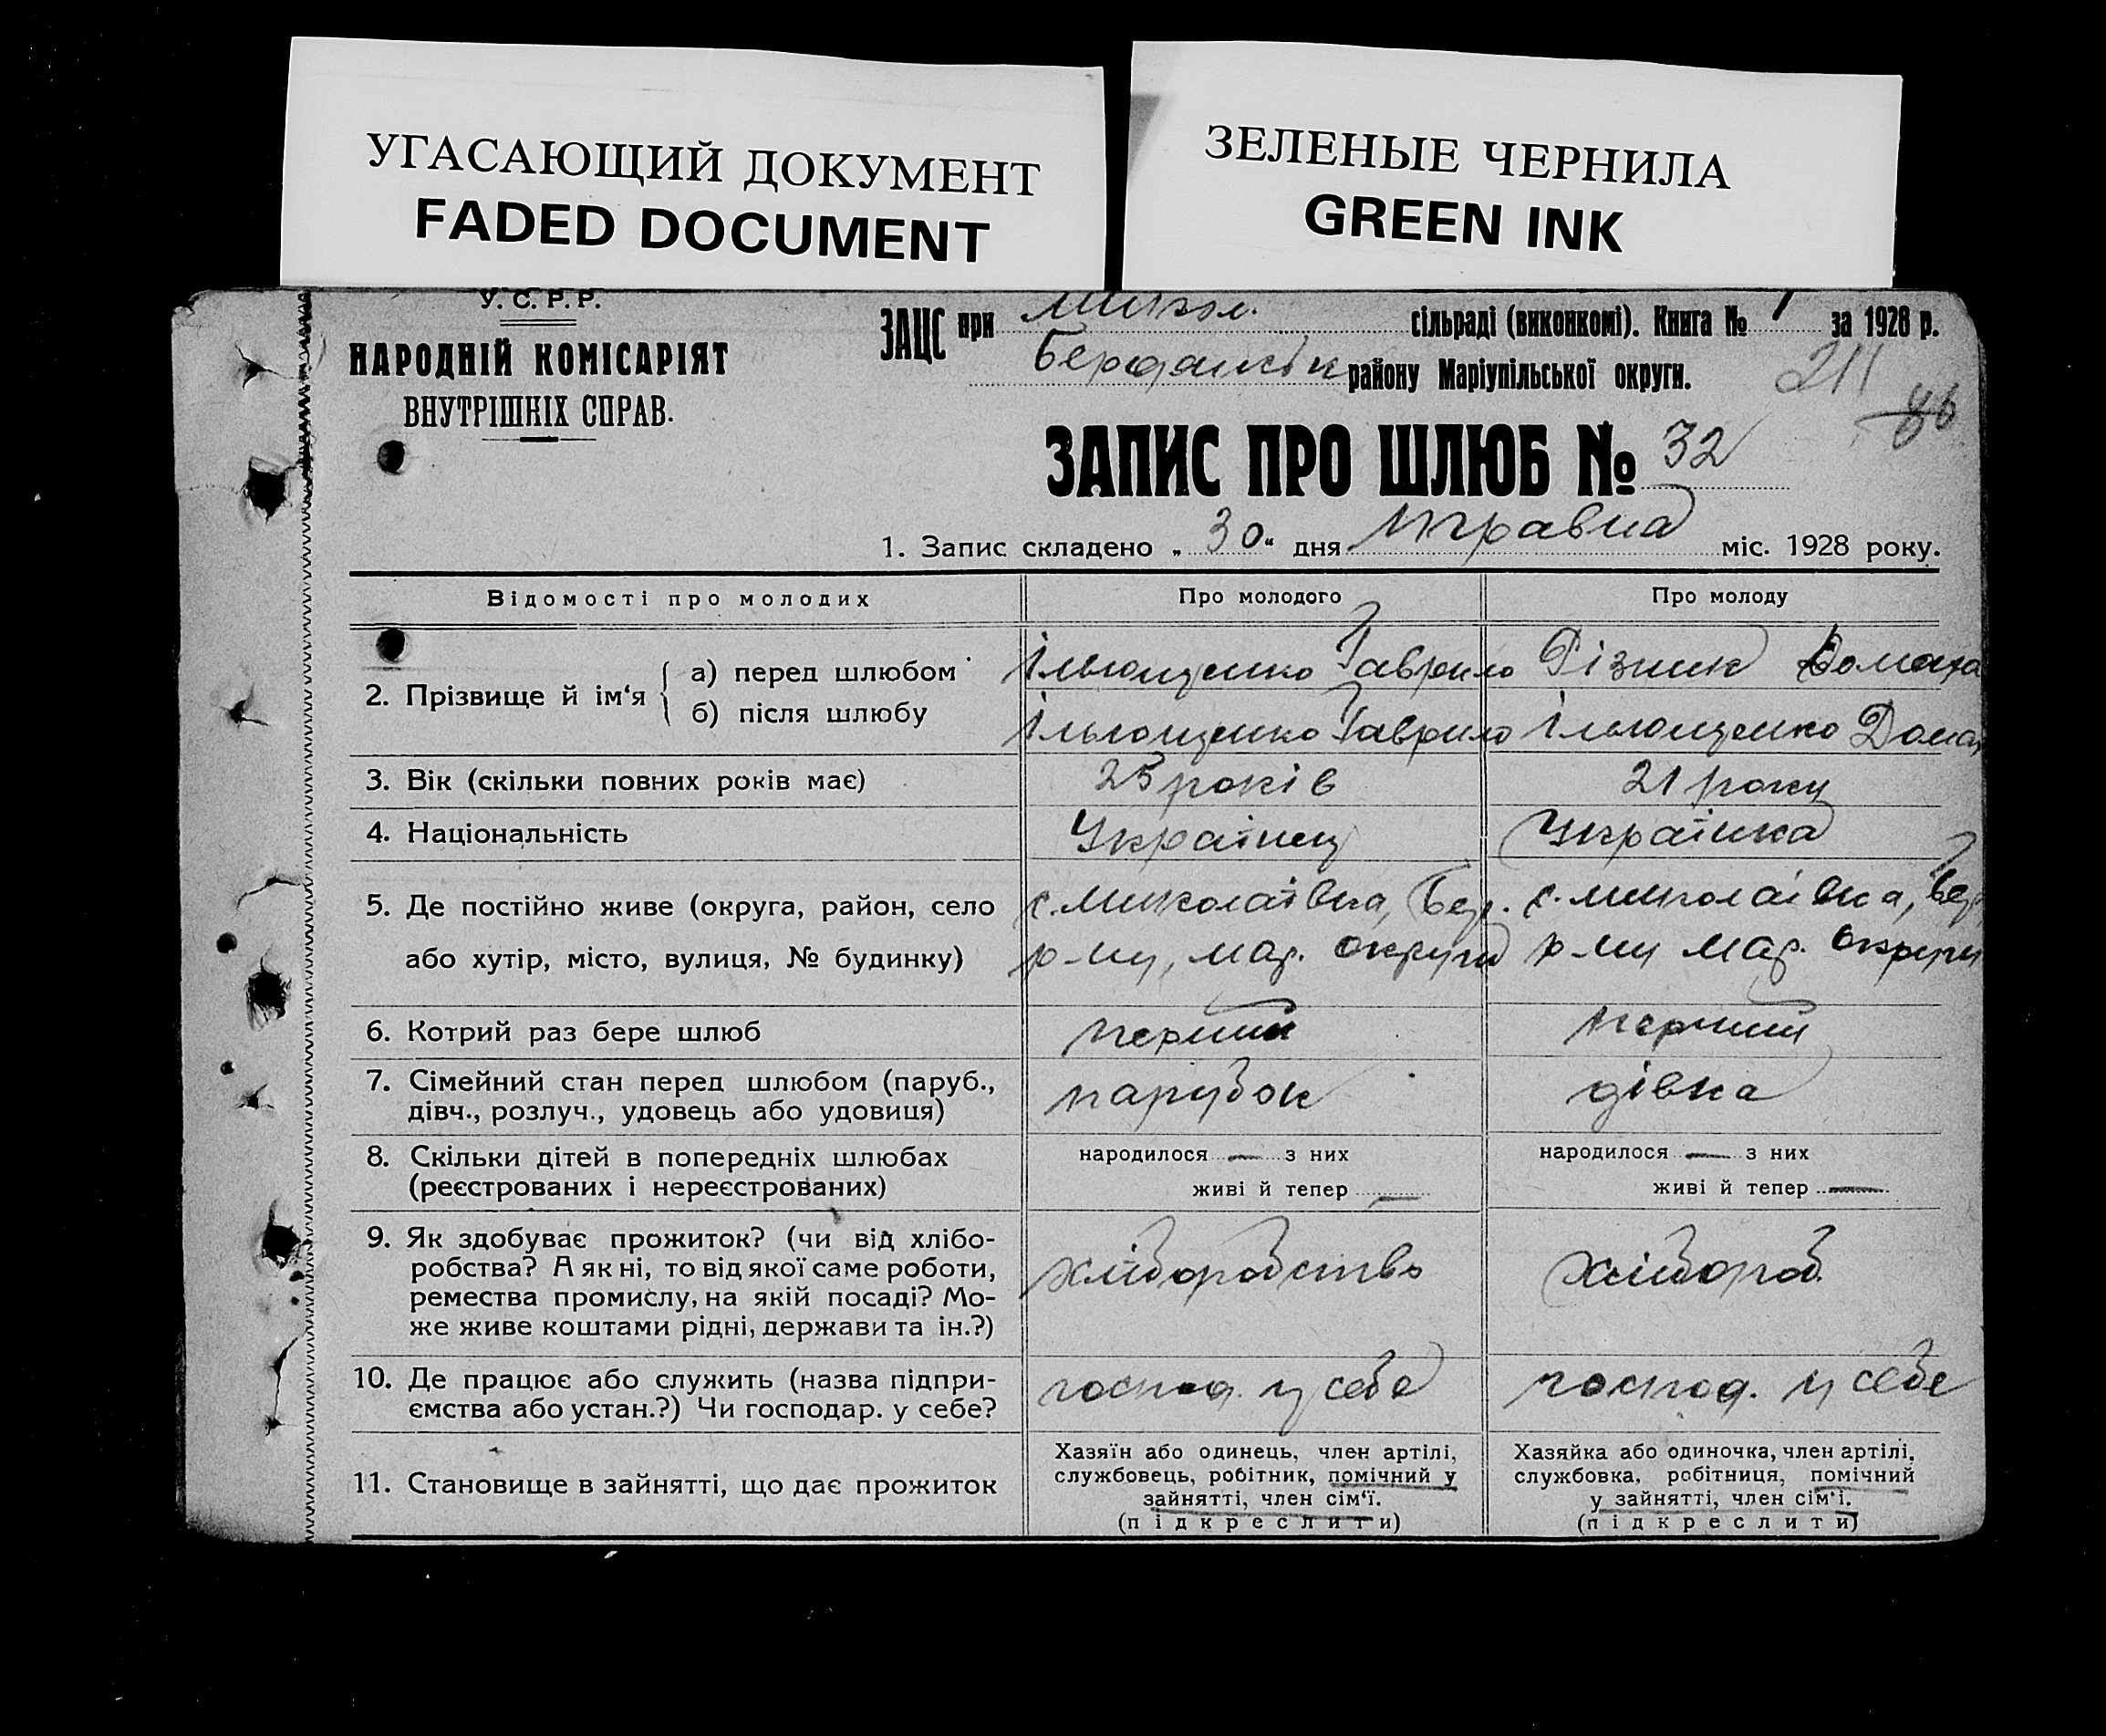 УГАСАЮЩИЙ ДОКУМЕНТ
FADED DOCUMENT
ЗЕЛЕНЫЕ ЧЕРНИЛА
GREEN INK
У. С. Р. Р.
НАРОДНІЙ КОМІСАРІЯТ
ВНУТРІШНІХ СПРАВ.
ЗАЦС при Микол. сільраді (виконкомі). Книга № 1 за 1928 р.
Бердянськ району Маріупільської округи.
211
86
ЗАПИС ПРО ШЛЮБ № 32
1. Запис складено „ 30 “ дня травня міс. 1928 року.
Відомості про молодих Про молодого Про молоду
2. Прізвище й ім‘я
а) перед шлюбом Ільющенко Гаврило Різник Домаха
б) після шлюбу Ільющенко Гаврило Ільющенко Дома
3. Вік (скільки повних років має) 25 років 21 року
4. Національність Українец Українка
5. Де постійно живе (округа, район, село с. Миколаївка, Бер. с. Миколаївка, Бер
або хутір, місто, вулиця, № будинку) р-ну, Мар. округи р-ну Мар. округи
6. Котрий раз бере шлюб перший перший
7. Сімейний стан перед шлюбом (паруб., парубок дівка
дівч., розлуч., удовець або удовиця)
8. Скільки дітей в попередніх шлюбах народилося — з них народилося — з них
(реєстрованих і нереєстрованих) живі й тепер — живі й тепер —
9. Як здобуває прожиток? (чи від хлібо- хліборобство хлібороб.
робства? А як ні, то від якої саме роботи,
ремества промислу, на якій посаді? Мо-
же живе коштами рідні, держави та ін.?)
10. Де працює або служить (назва підпри- господ. у себе господ. у себе
ємства або устан.?) Чи господар. у себе?
11. Становище в зайнятті, що дає прожиток
Хазяїн або одинець, член артілі,
службовець, робітник, помічний у
зайнятті, член сім‘ї.
(підкреслити)
Хазяйка або одиночка, член артілі,
службовка, робітниця, помічний
у зайнятті, член сім‘ї.
(підкреслити)